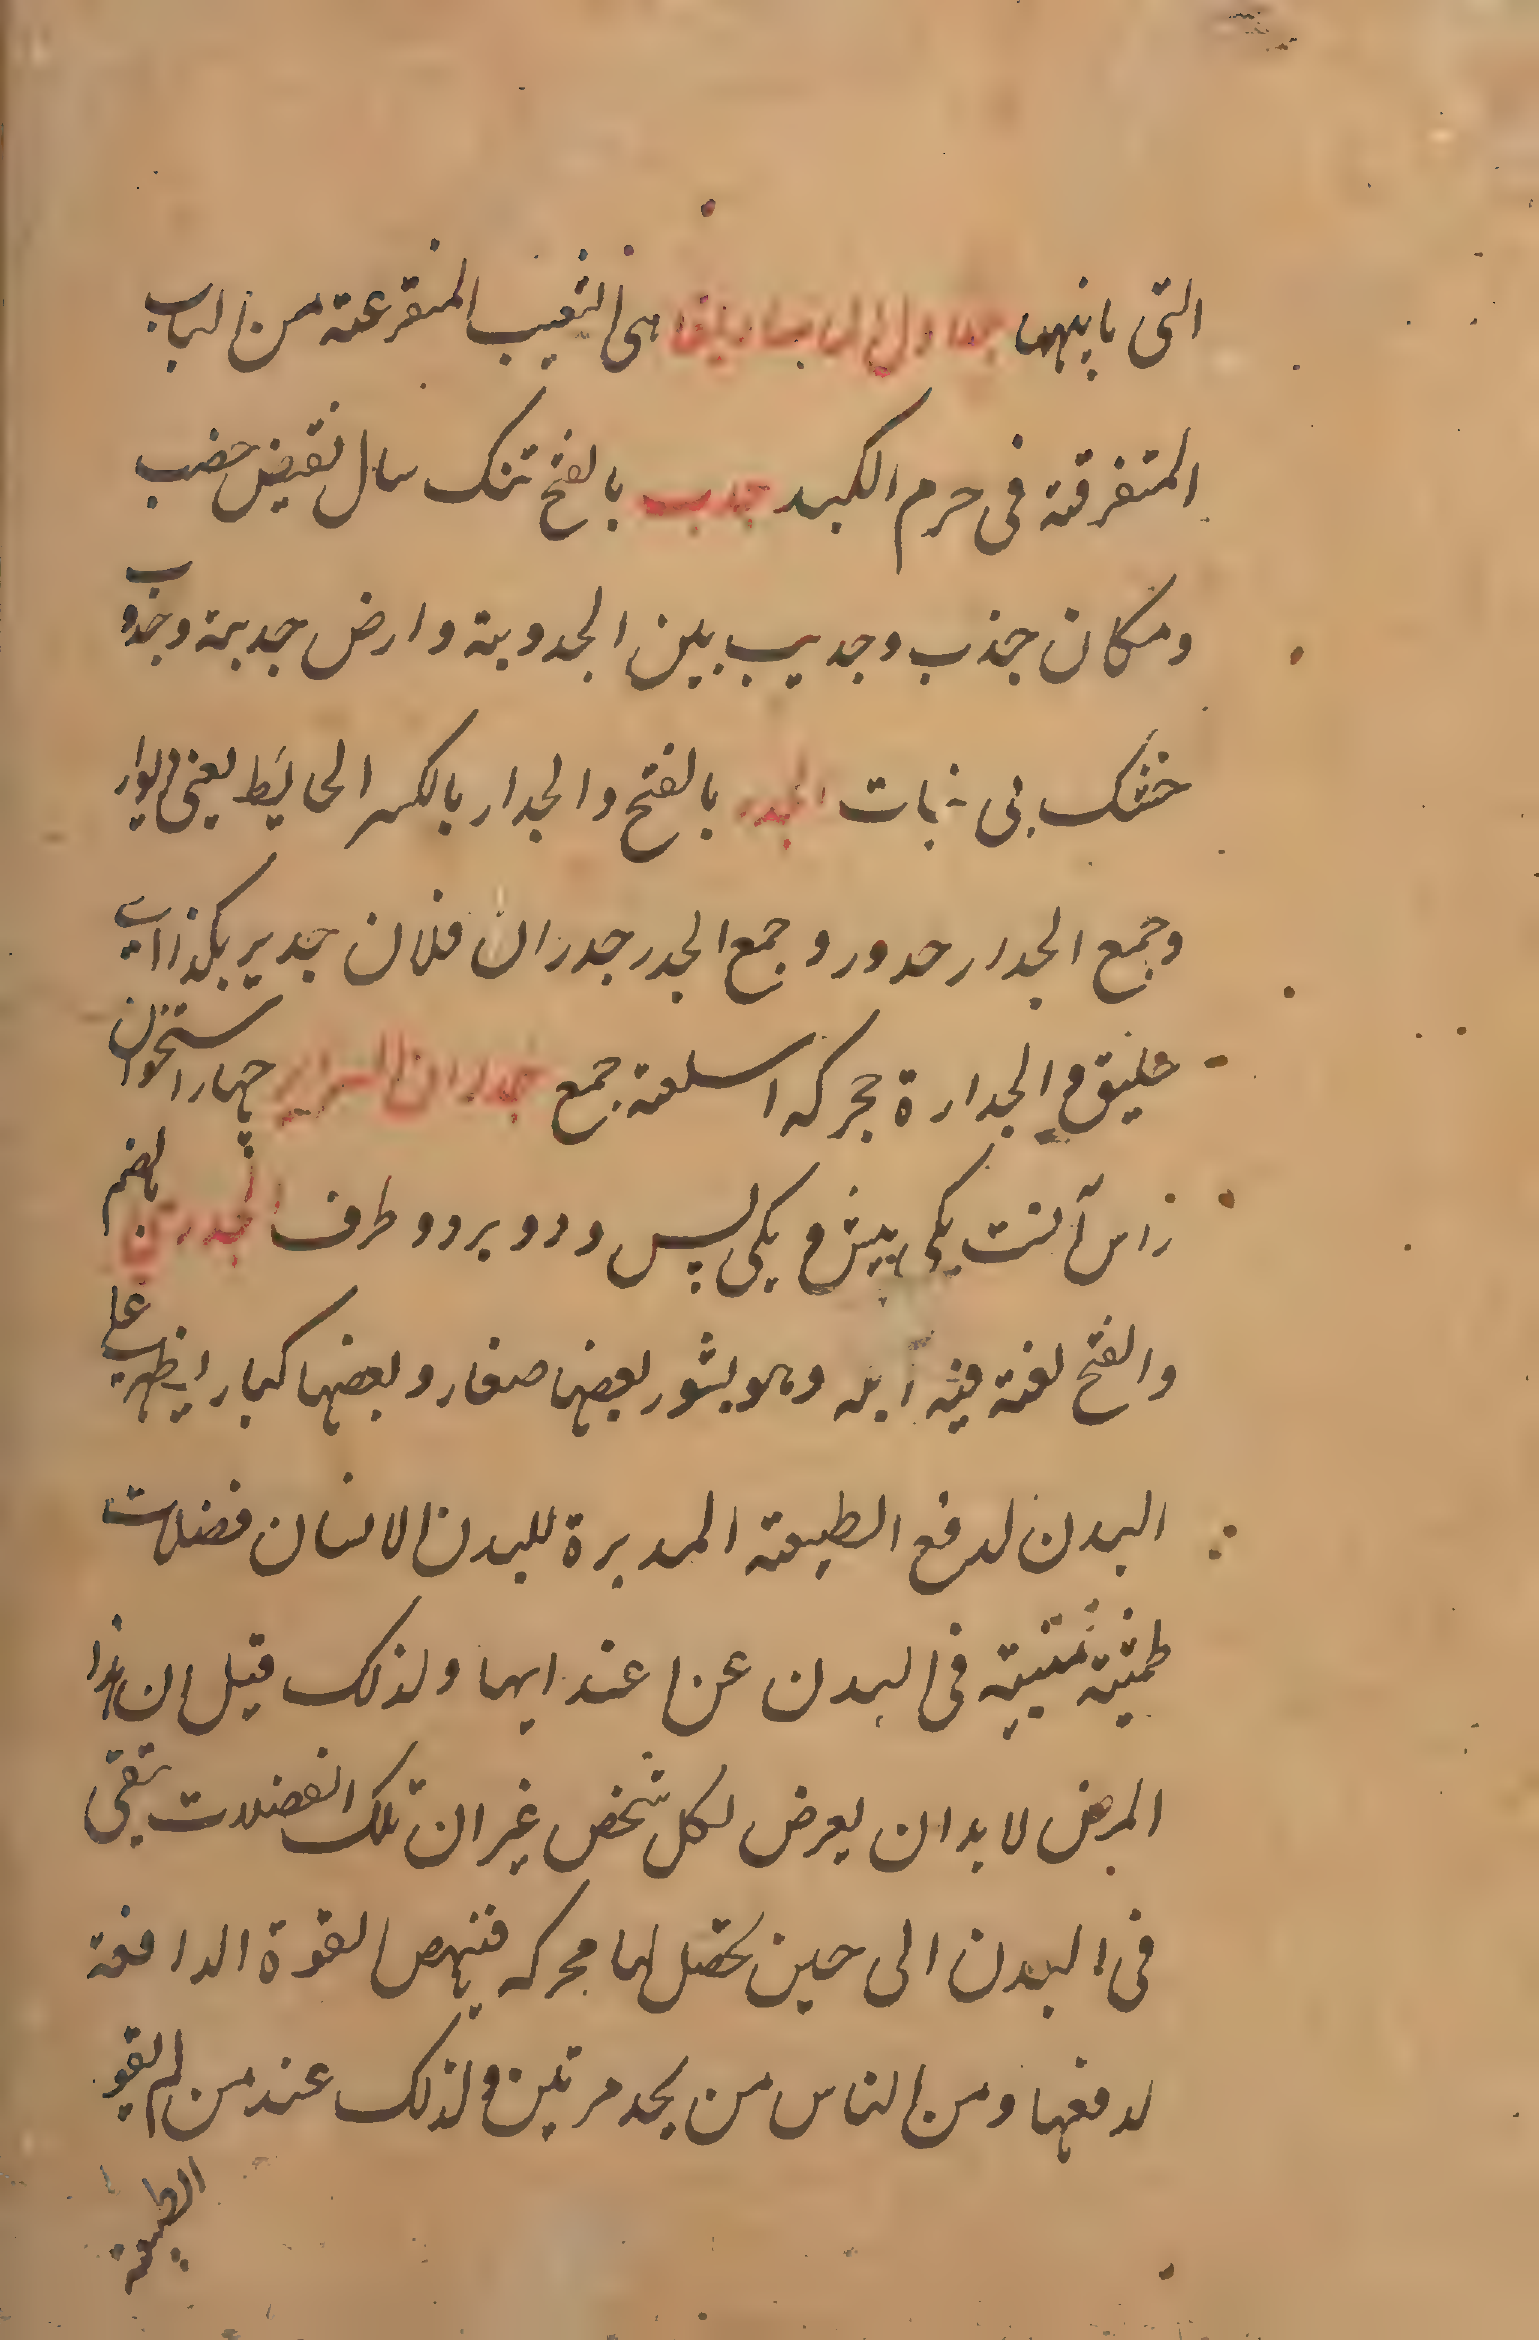 التی یا بینهما جداول الماساریقا هی الشعیب المتفرعة من الباب
المتفرقة فی جرم الکبد جدب بالفتح تنک سال نقیض خصب
ومکان جذب وجدیب بین الجدوبة وارض جدبة وجذوب
خشک بی نبات الجدر بالفتح والجدار بالکسر الحایط یعنی دیوار
وجمع الجدار جدور وجمع الجدر جدران فلان جدیر بکذا ای
خلیق و الجدارة حجرکه السلعة جمع جدران السرایر چهار استخوان
راس آلنت یکی پیش و یکی پس ودو بردو طرف الجدری بضم
والفتح لغة فیه آبله وهو بثور بعضها صغار وبعضها کبار یظهر علی
البدن لدفع الطبیعة المدبرة للبدن الانسان فضلات
طمثیة متبیة فی البدن عن عند ایها ولذلک قیل ان هذا
المرض لا بد ان یعرض لکل شخص غیر ان تلک الفضلات تبقی
فی البدن الی حین یحصل لها محرکه فینهض القوة الدافعة
لدفعها ومن الناس من یجدر مرتین ولذلک عند من لم یقو
الطبیعة